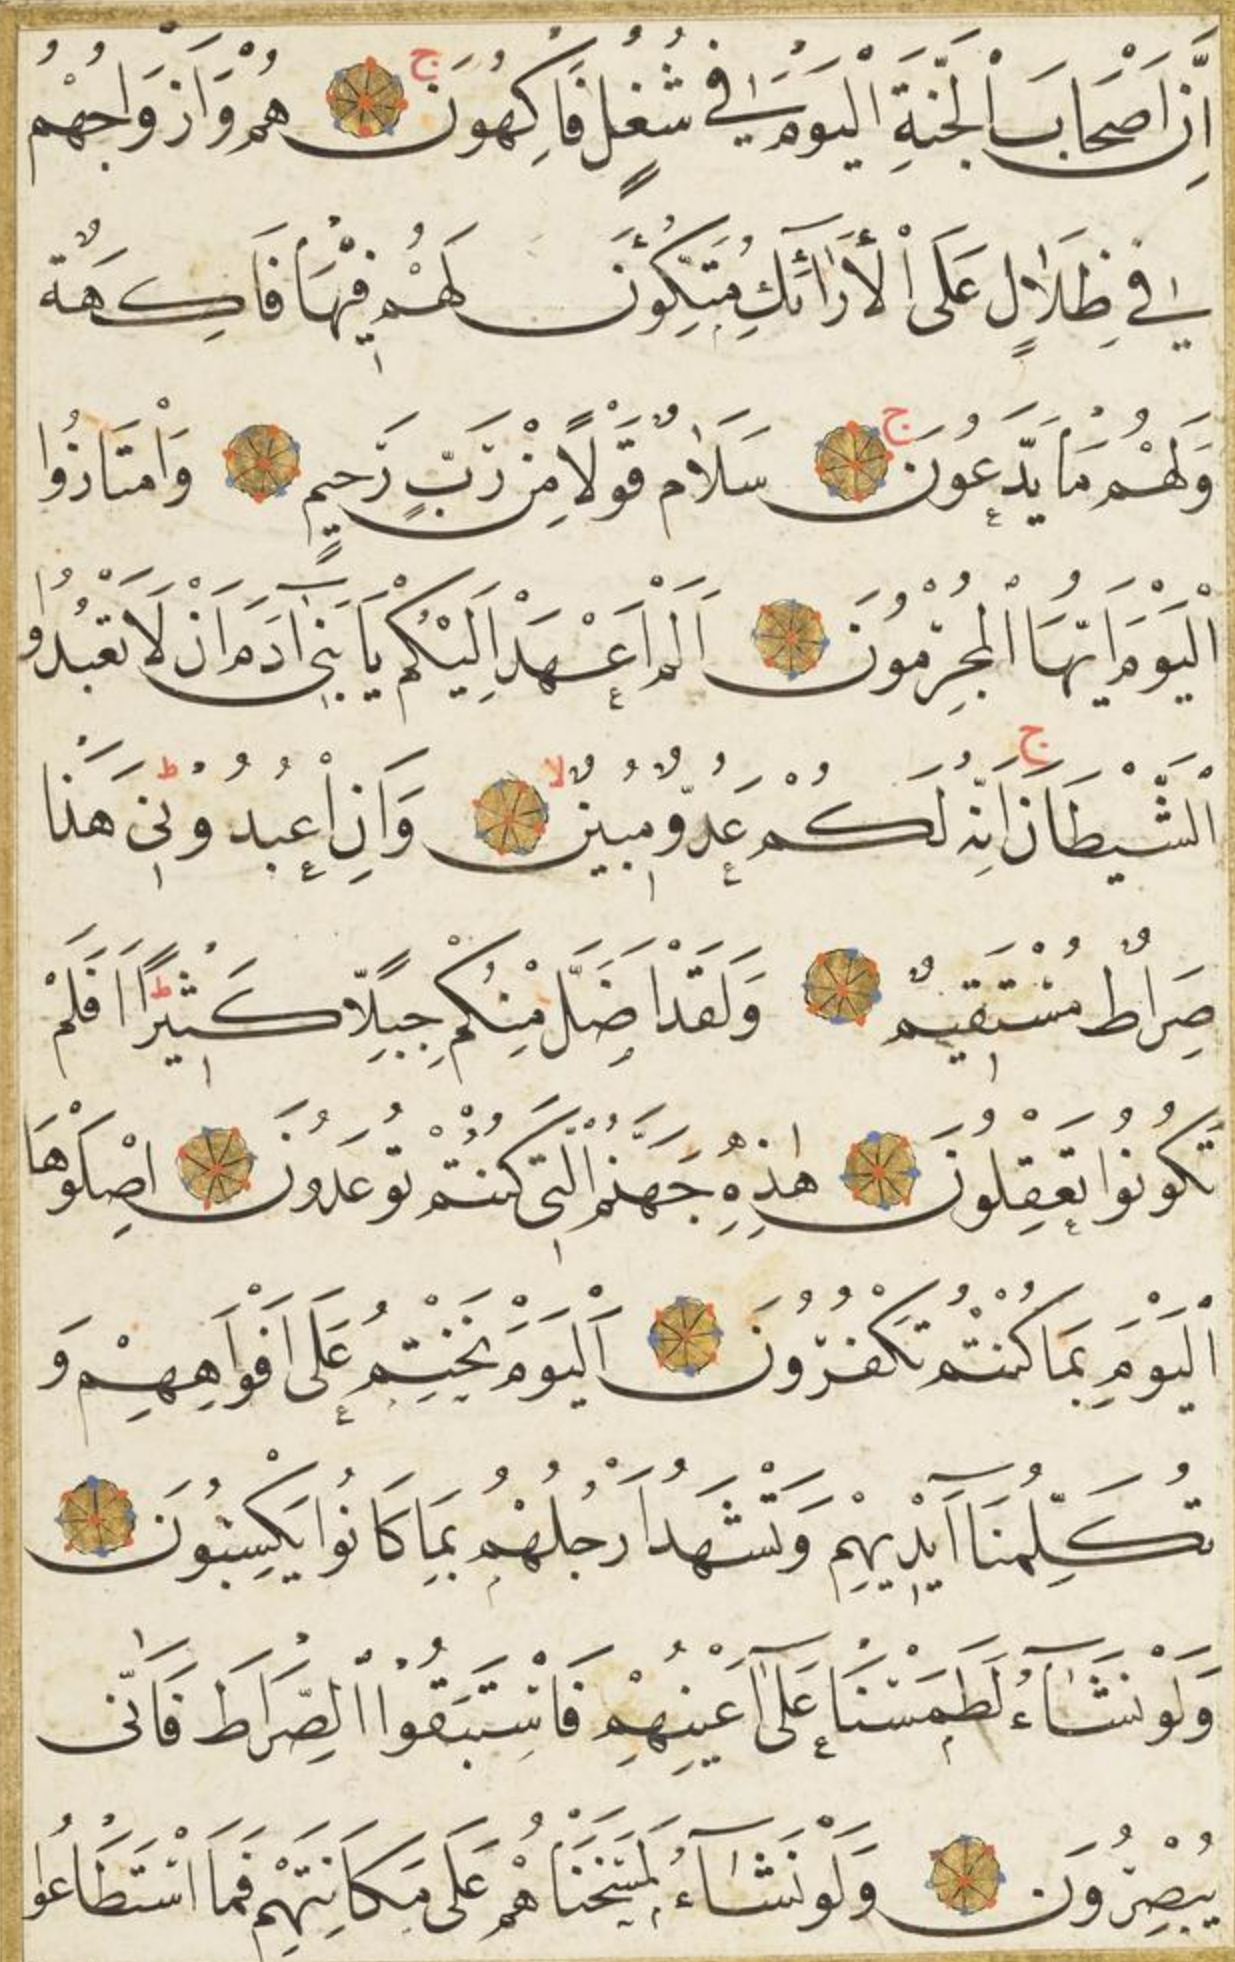 اِنَّ اَصْحَابَ الْجَنَّةِ الْيَوْمَ فِي شُغُلٍ فَاكِهُونَ ج هُمْ وَاَزْوَاجُهُمْ
فِي ظِلَالٍ عَلَى الْاَرَائِكِ مُتَّكِؤُنَ لَهُمْ فِيهَا فَاكِهَةٌ
وَلَهُمْ مَا يَدَّعُونَ ج سَلَامٌ قَوْلًا مِنْ رَبٍّ رَحِيمٍ وَامْتَازُوا
الْيَوْمَ اَيُّهَا الْمُجْرِمُونَ اَلَمْ اَعْهَدْ اِلَيْكُمْ يَا بَنِي اٰدَمَ اَنْ لَا تَعْبُدُوا
الشَّيْطَانَ ج اِنَّهُ لَكُمْ عَدُوٌّ مُبِينٌ لا وَاَنِ اعْبُدُونِي ط هَذَا
صِرَاطٌ مُسْتَقِيمٌ وَلَقَدْ اَضَلَّ مِنْكُمْ جِبِلًّا كَثِيرًا ط اَفَلَمْ
تَكُونُوا تَعْقِلُونَ هٰذِهِ جَهَنَّمُ الَّتِي كُنْتُمْ تُوعَدُونَ اِصْلَوْهَا
الْيَوْمَ بِمَا كُنْتُمْ تَكْفُرُونَ اَلْيَوْمَ نَخْتِمُ عَلَى اَفْوَاهِهِمْ وَ
تُكَلِّمُنَا اَيْدِيهِمْ وَتَشْهَدُ اَرْجُلُهُمْ بِمَا كَانُوا يَكْسِبُونَ
وَلَوْ نَشَاءُ لَطَمَسْنَا عَلَى اَعْيُنِهِمْ فَاسْتَبَقُوا الصِّرَاطَ فَاَنّٰى
يُبْصِرُونَ وَلَوْ نَشَاءُ لَمَسَخْنَاهُمْ عَلَى مَكَانَتِهِمْ فَمَا اسْتَطَاعُوا